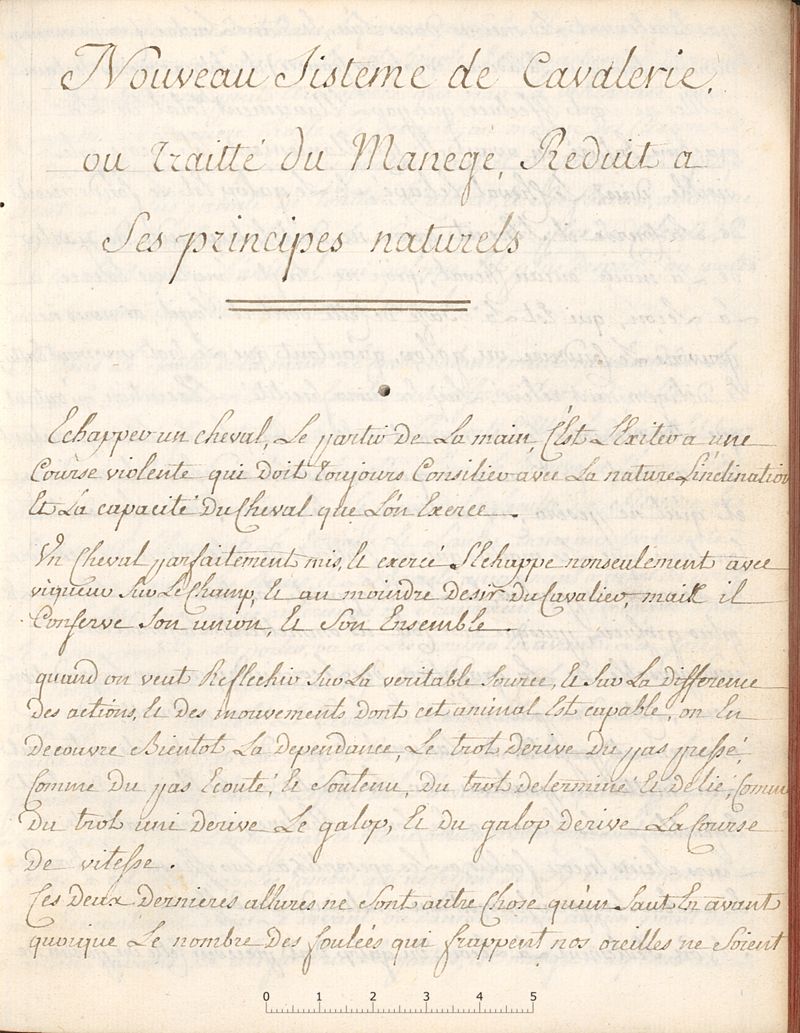 Nouveau Sisteme de Cavalerie,
ou traitté du Manege, Reduit a
Ses principes naturels
Echapper un cheval, Le partir de La main, C'Est L'Exiter a une
Course violente qui doit toujours Consilier avec La nature L'inclination
Et La capacité Du Cheval que L'on Exerce.
Un Cheval parfaitement mis, Et exercé S'Echappe nonseulement avec
vigueur Sur Le Champ, Et au moindre desir Du Cavalier, mais il
Conserve Son union, Et Son Ensemble.
quand on veut Reflechir Sur La veritable Source, Et Sur La difference
des actions, Et des mouvements dont cet animal Est capable, on En
decouvre Bientot La dependance, Le trot derive du pas pressé,
Comme du pas Ecouté, Et Soutenu, du trot determiné Et delié, Comme
Du trot uni derive Le galop, Et du galop derive La Course
de vitesse.
Ces deux dernieres allures ne Sont autre Chose qu'un Saut En avant
quoique Le nombre des foulées qui frappent nos oreilles ne Soient
0 1 2 3 4 5